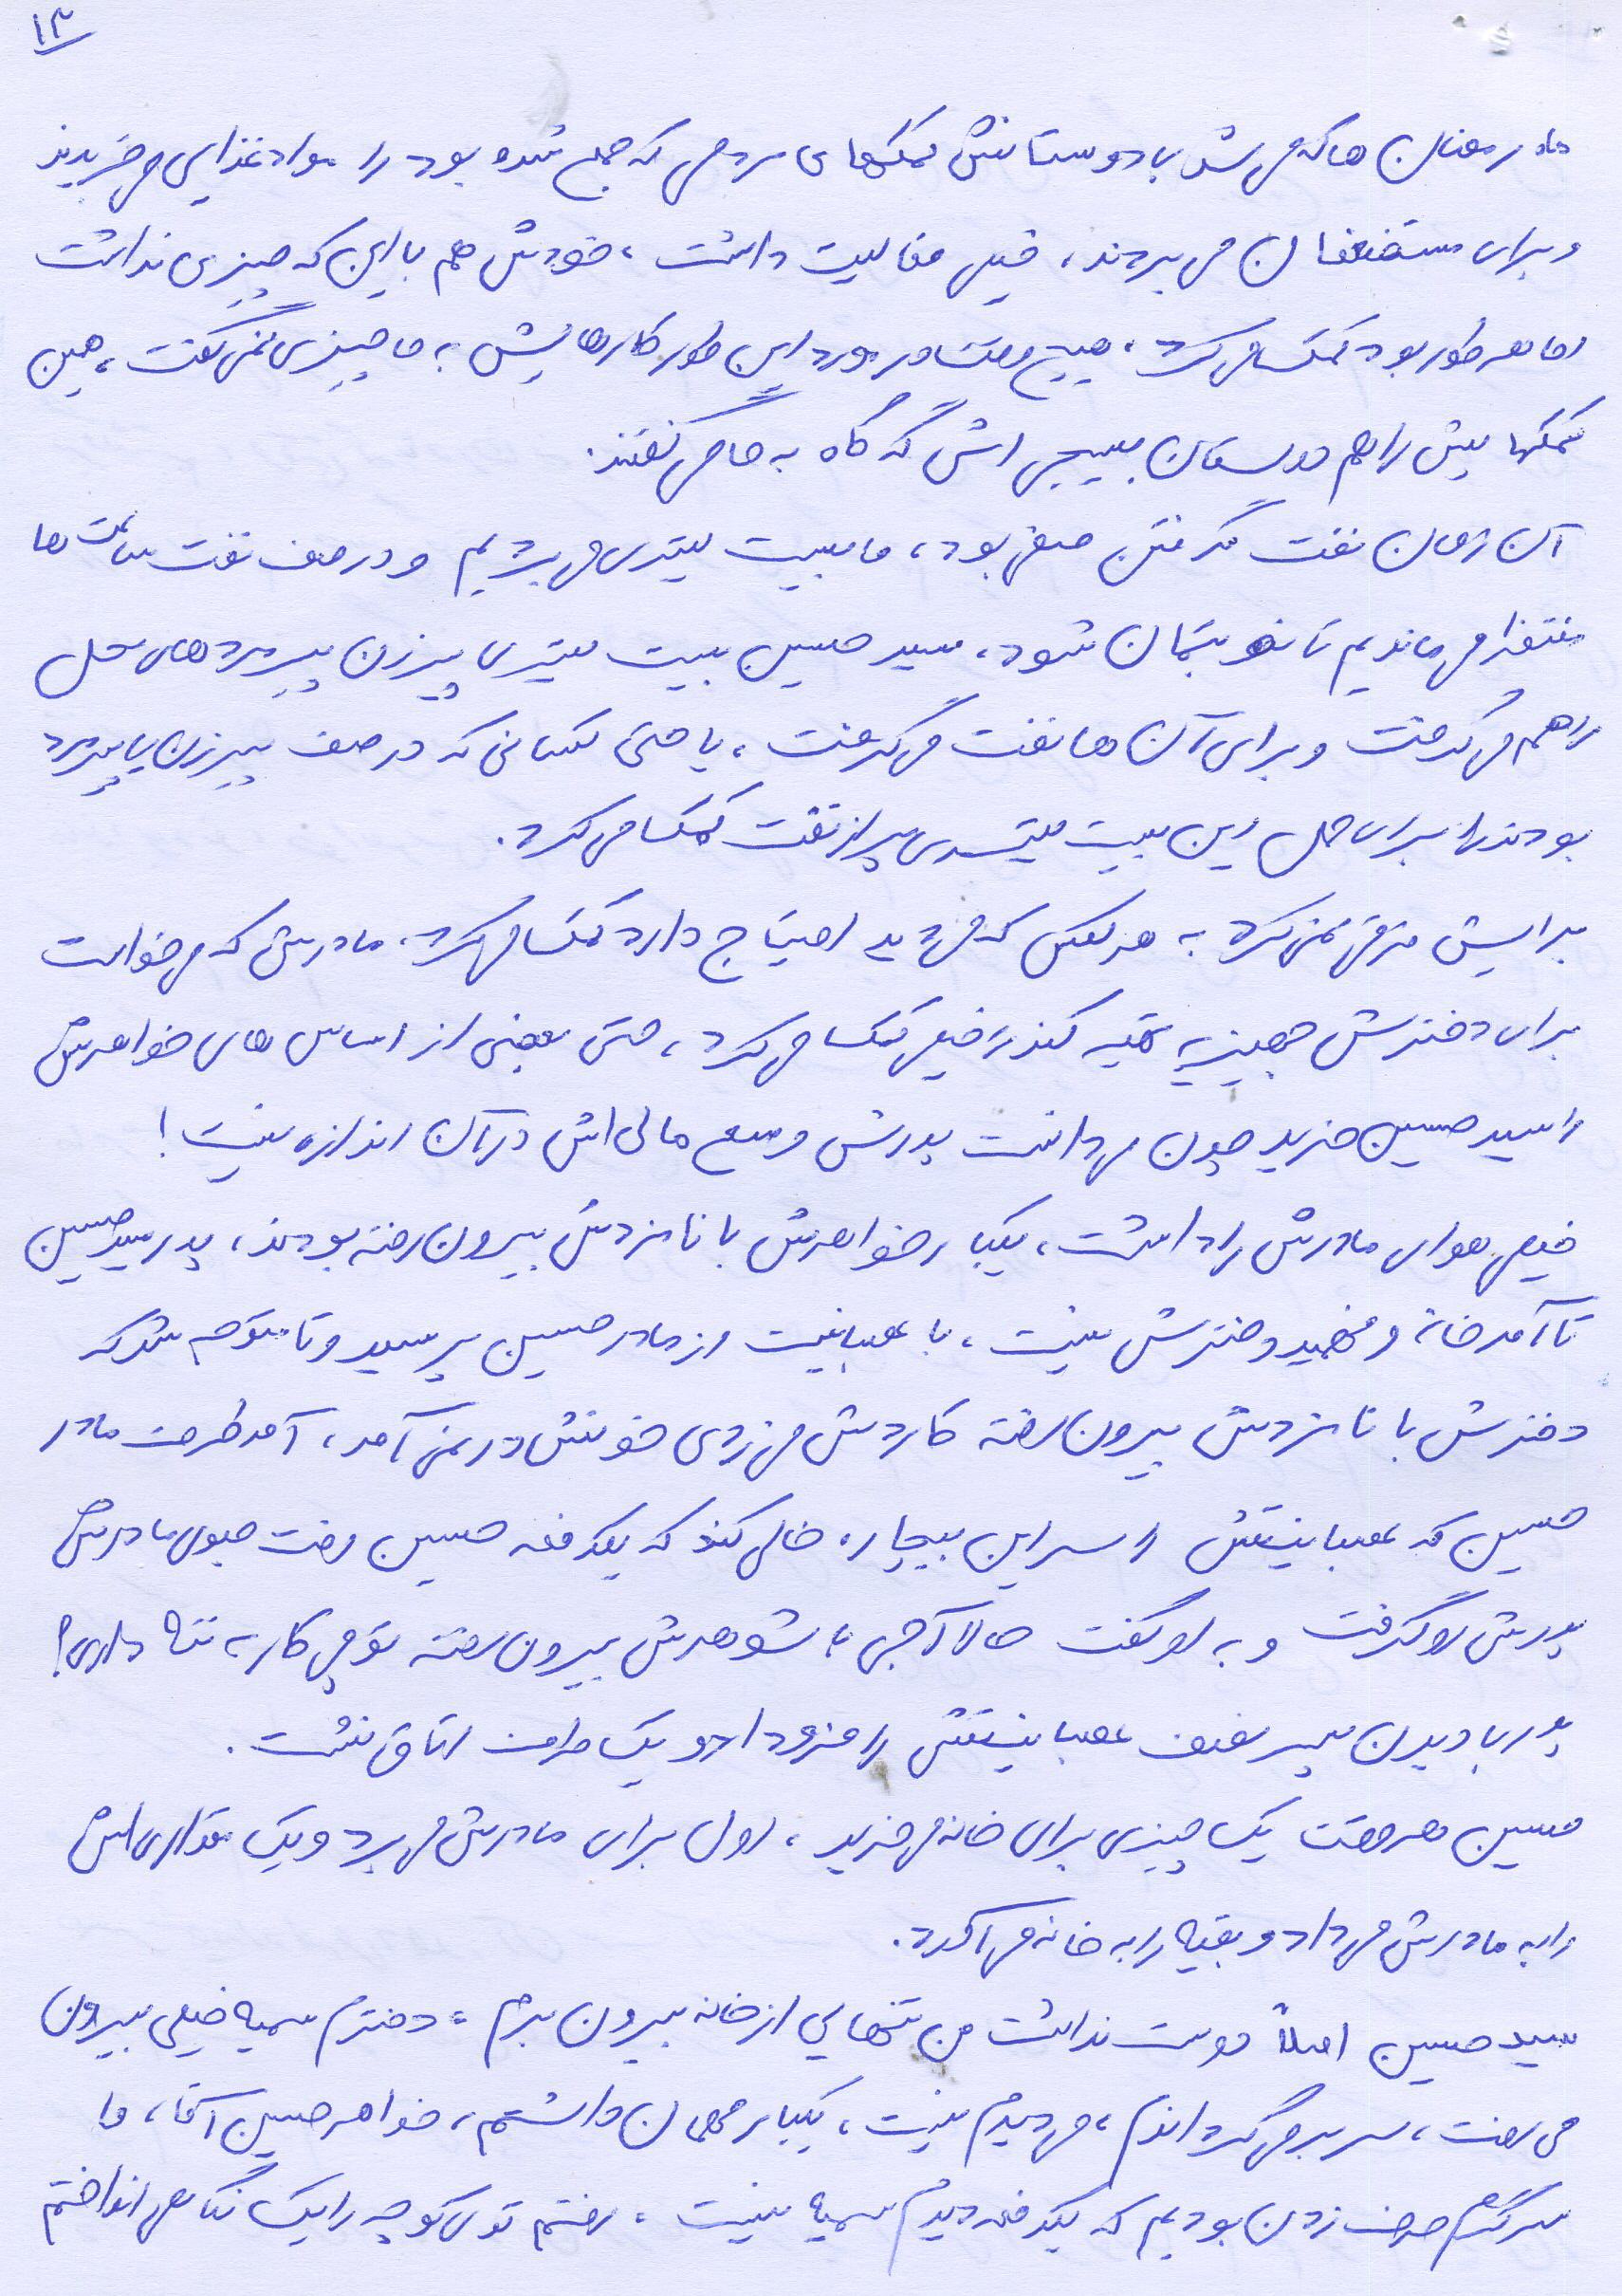 ۱۳
ماه رمضان ها که می شد با دوستانش کمکهای مردمی که جمع شده بود را مواد غذایی می خریدند
و برای مستضعفان می بردند، خیلی فعالیت داشت، خودش هم با این که چیزی نداشت
اما هر طور بود کمک می کرد، هیچ وقت در مورد این طور کارهایش به ما چیزی نمی گفت، همین
کمکهایش را هم دوستان بسیجی اش گه گاه به ما می گفتند.
آن زمان نفت گرفتن صفی بود، ما بیست لیتری می بردیم و در صف نفت ساعت ها
منتظر می ماندیم تا نوبتمان شود، سید حسین بیست لیتری پیرزن پیرمردهای محل
را هم می گرفت و برای آن ها نفت می گرفت، یا حتی کسانی که در صف پیرزن یا پیرمرد
بودند را برای حمل این بیست لیتری پر از نفت کمک می کرد.
برایش فرقی نمی کرد به هر کس که می دید احتیاج دارد کمک می کرد، مادرش که می خواست
برای دخترش جهیزیه تهیه کند را خیلی کمک می کرد، حتی بعضی از اساس های خواهرش
را سید حسین خرید چون می دانست پدرش وسع مالی اش در آن اندازه نیست!
خیلی هوای مادرش را داشت، یکبار خواهرش با نامزدش بیرون رفته بودند، پدر سید حسین
تا آمد خانه و فهمید دخترش نیست، با عصبانیت از مادر حسین پرسید و تا متوجه شد که
دخترش با نامزدش بیرون رفته کاردش می زدی خونش در نمی آمد، آمد طرف مادر
حسین که عصبانیتش را سر این بیچاره خالی کند که یکدفعه حسین رفت جلوی مادرش
پدرش رو گرفت و به او گفت حالا آجی با شوهرش بیرون رفته تو چی کار به ننه داری؟
پدر با دیدن پسر عصبانیتش را فرو داد و یک طرف اتاق نشست.
حسین هر وقت یک چیزی برای خانه می خرید، اول برای مادرش می برد و یک مقداری اش
را به مادرش می داد و بقیه را به خانه می آورد.
سید حسین اصلاً دوست نداشت من تنهایی از خانه بیرون بروم، دخترم سمیه خیلی بیرون
می رفت، سر بر می گرداندم، می دیدم نیست، یکبار مهمان داشتم، خواهر حسین آقا، ما
سرگرم حرف زدن بودیم که یکدفعه دیدم سمیه نیست، رفتم توی کوچه را یک نگاهی انداختم